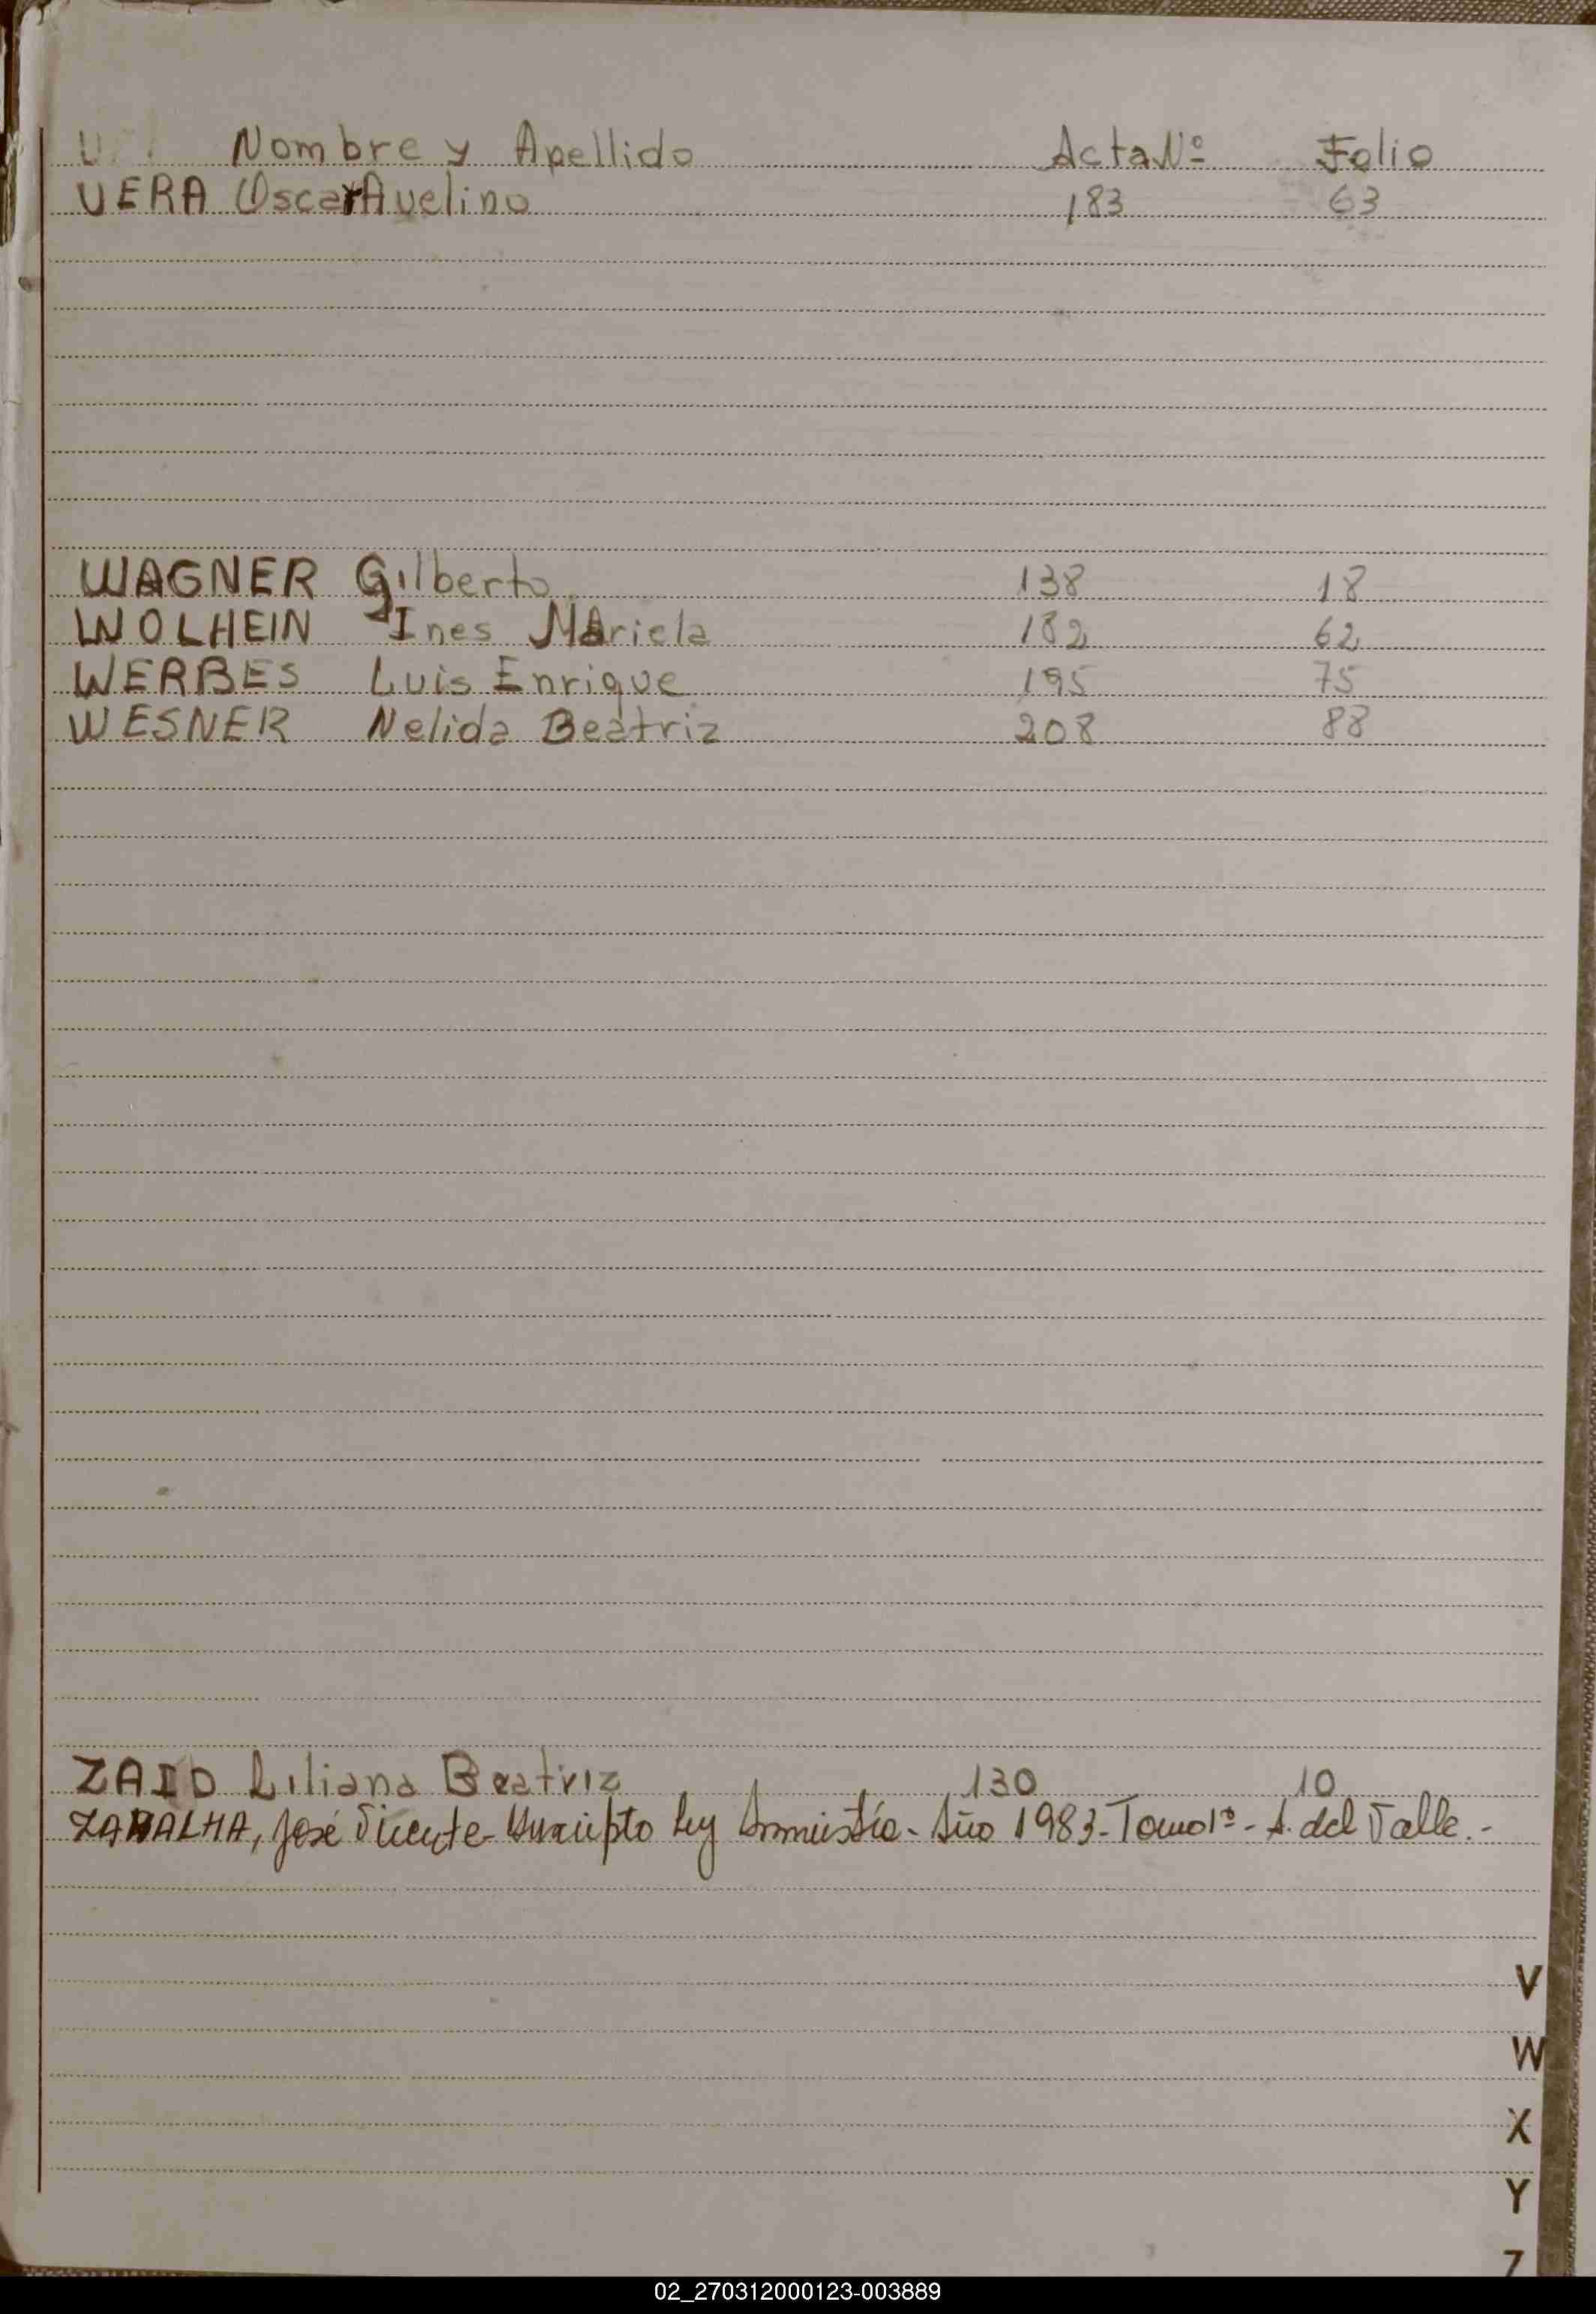 V Nombre y Apellido Acta Nº Folio
VERA Oscar Avelino 183 63
WAGNER Gilberto 138 18
WOLHEIN Ines Mariela 182 62
WERBES Luis Enrique 195 75
WESNER Nelida Beatriz 208 88
ZAID Liliana Beatriz 130 10
ZABALHA, José Vicente - Inscripto Ley Amnistía - Año 1983 - Tomo 1º - A. del Valle.-
V
W
X
Y
Z
02_270312000123-003889